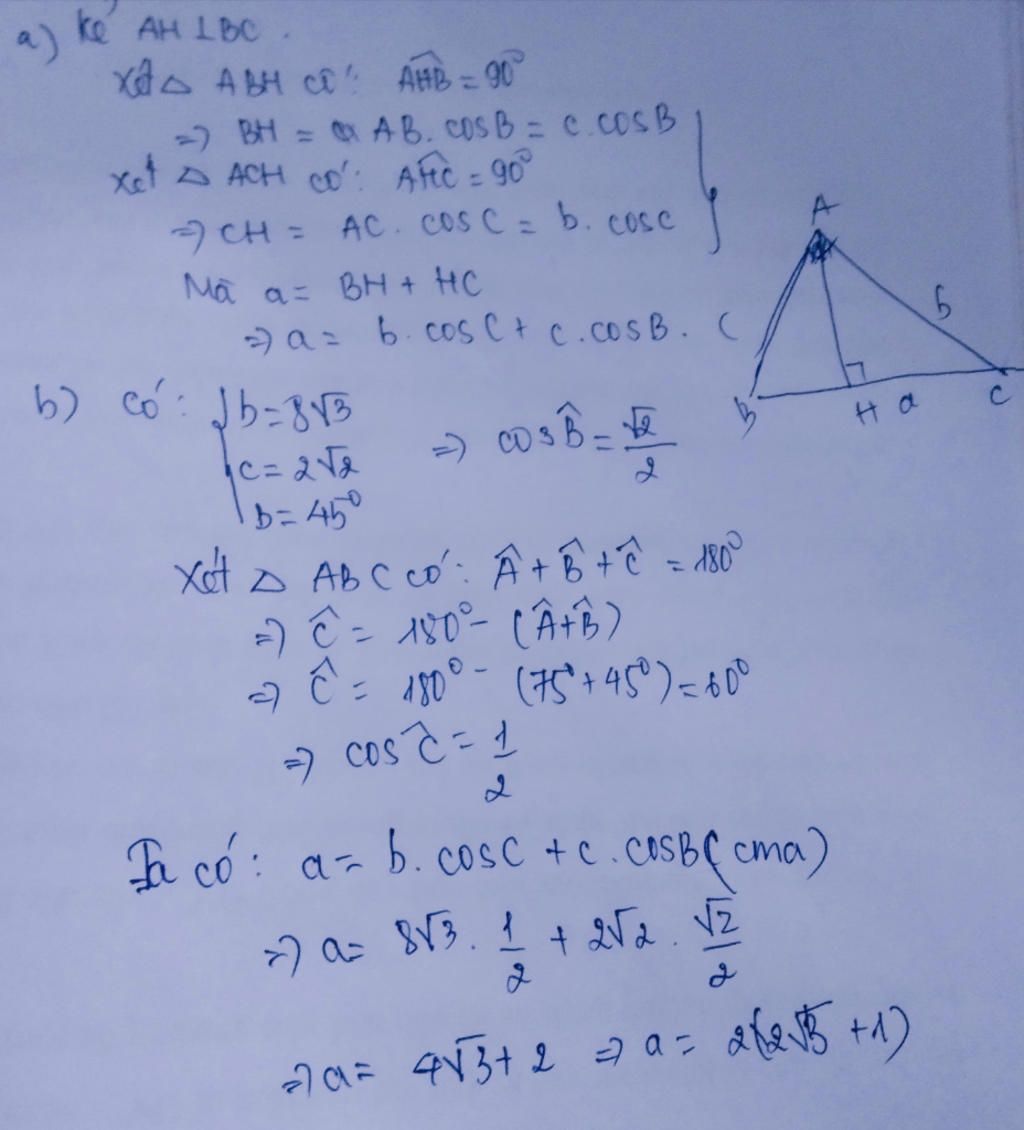 a) Kẻ AH ⊥ BC.
Xét △ ABH có: AHB̂ = 90°
=> BH = AB. cosB = c.cosB
xét △ ACH có: AHĈ = 90°
=> CH = AC. cosC = b. cosC
Mà a = BH + HC
=> a = b. cosC + c.cosB.
A
c
b
B
H
a
C
b) có: { b = 8√3
c = 2√2 => cos B̂ = √2/2
b = 45°
Xét △ ABC có: Â + B̂ + Ĉ = 180°
=> Ĉ = 180° - (Â+B̂)
=> Ĉ = 180° - (75°+45°) = 60°
=> cos Ĉ = 1/2
Ta có: a = b. cosC + c.cosB (cma)
=> a = 8√3. 1/2 + 2√2. √2/2
=> a = 4√3 + 2 => a = 2(2√3 + 1)